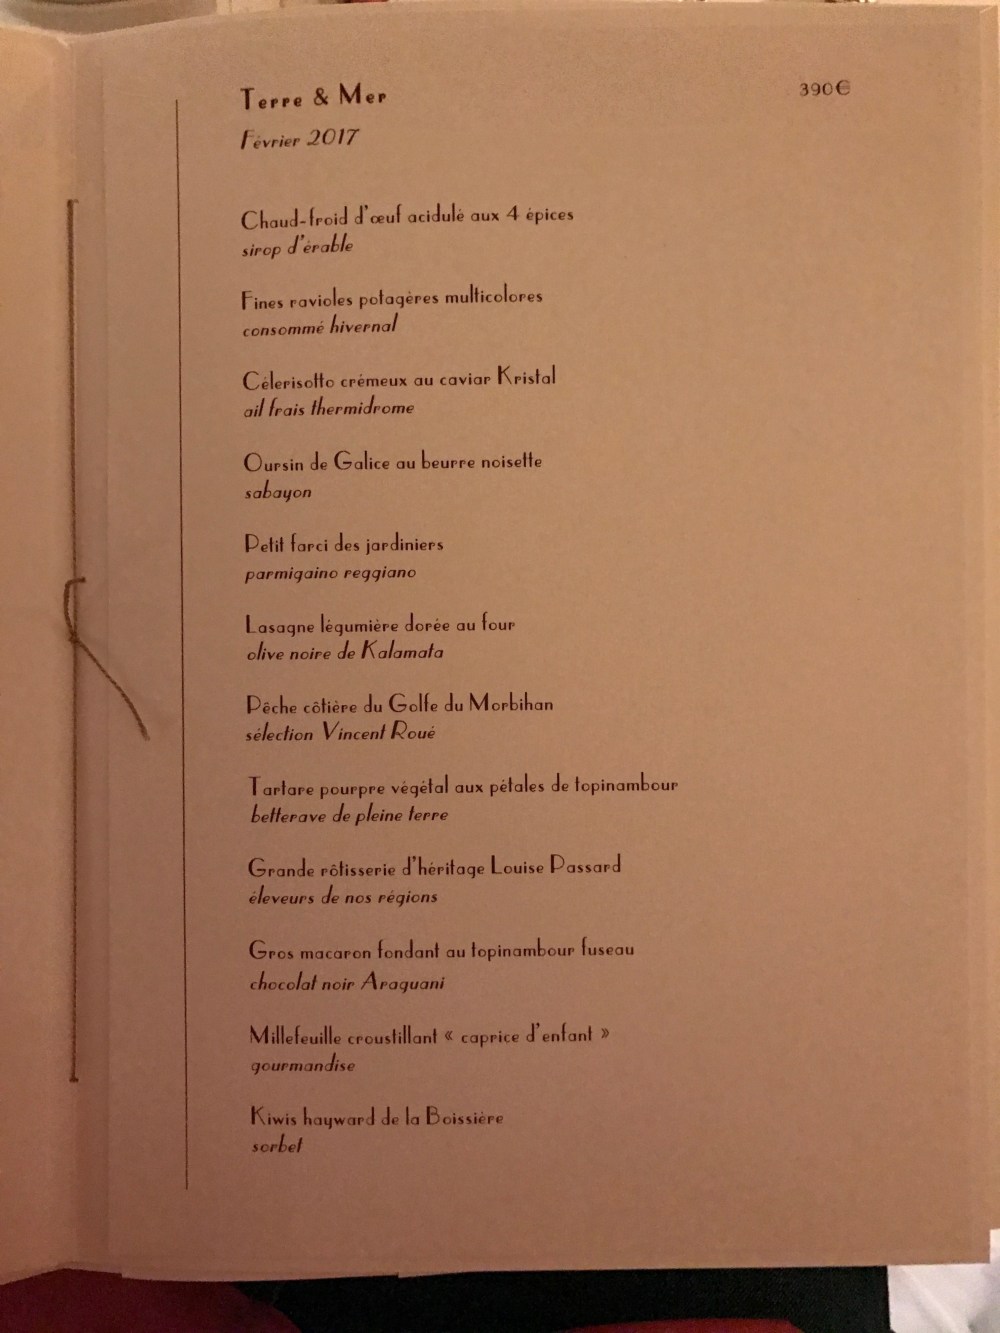 Terre & Mer
390€
Février 2017
Chaud-froid d'œuf acidulé aux 4 épices
sirop d'érable
Fines ravioles potagères multicolores
consommé hivernal
Célerisotto crémeux au caviar Kristal
ail frais thermidrome
Oursin de Galice au beurre noisette
sabayon
Petit farci des jardiniers
parmigaino reggiano
Lasagne légumière dorée au four
olive noire de Kalamata
Pêche côtière du Golfe du Morbihan
sélection Vincent Roué
Tartare pourpre végétal aux pétales de topinambour
betterave de pleine terre
Grande rôtisserie d'héritage Louise Passard
éleveurs de nos régions
Gros macaron fondant au topinambour fuseau
chocolat noir Araguani
Millefeuille croustillant « caprice d'enfant »
gourmandise
Kiwis hayward de la Boissière
sorbet